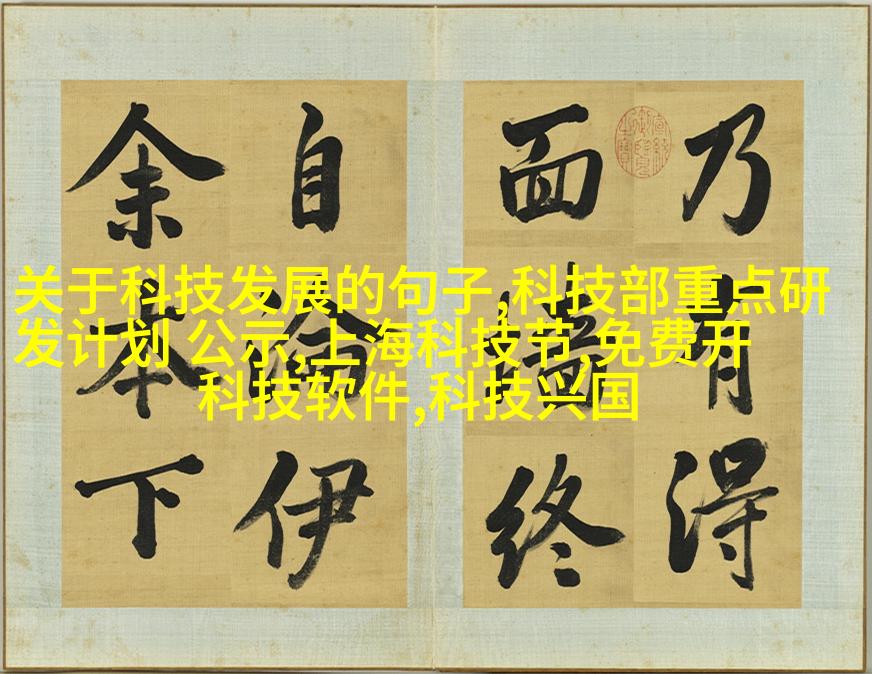 关于科技发展的句子,科技部重点研
发计划 公示,上海科技节,免费开
科技软件,科技兴国
乃有得
面墻終
自伊
余本下